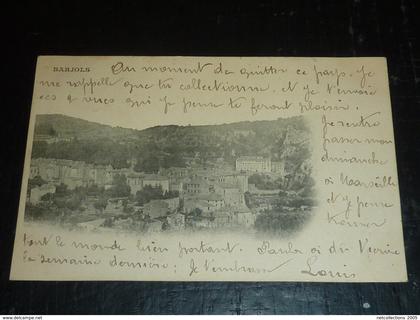 BARJOLS
Au moment de quitter ce pays. Je
me rappelle que tu collectionne. et je t'envoie
ces 4 vues qui je pense te feront plaisir.
Je rentre
passer mon
dimanche
à Marseille
et je pense
trouver
tout le monde bien portant. Paula a dû t'écrire
la semaine dernière; Je t'embrasse Louis